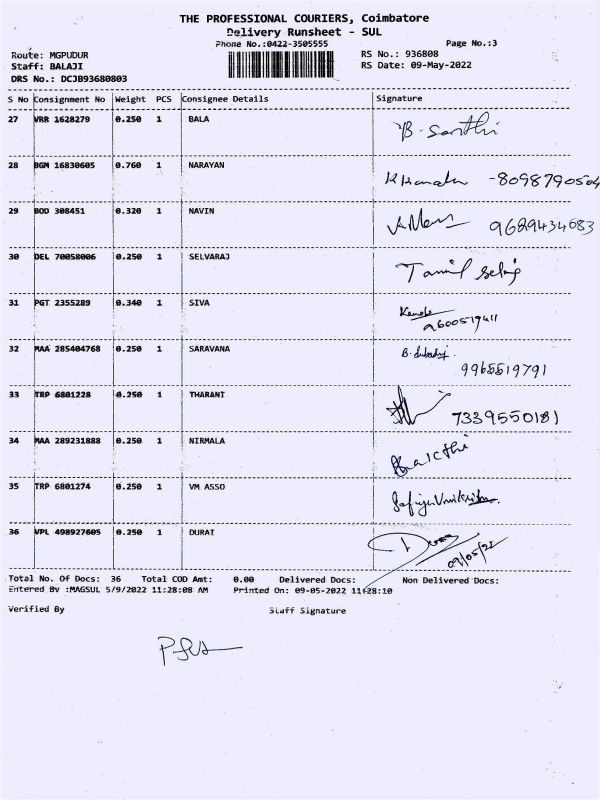 THE PROFESSIONAL COURIERS, Coimbatore
Delivery Runsheet - SUL
Phone No.:0422-3505555 Page No.:3
Route: MGPUDUR RS No.: 936808
Staff: BALAJI RS Date: 09-May-2022
DRS No.: DCJB93680803
S No Consignment No Weight PCS Consignee Details Signature
27 VRR 1628279 0.250 1 BALA B. Santhi
28 BGM 16830605 0.760 1 NARAYAN -8098790504
29 BOD 308451 0.320 1 NAVIN 9689434683
30 DEL 70058006 0.250 1 SELVARAJ Tamil Selvi
31 PGT 2355289 0.340 1 SIVA
32 MAA 285404768 0.250 1 SARAVANA
9965519791
33 TRP 6801228 0.250 1 THARANI 7339550181
34 MAA 289231888 0.250 1 NIRMALA
35 TRP 6801274 0.250 1 VM ASSO
36 VPL 498927605 0.250 1 DURAI
09/05/22
Total No. Of Docs: 36 Total COD Amt: 0.00 Delivered Docs: Non Delivered Docs:
Entered By :MAGSUL 5/9/2022 11:28:08 AM Printed On: 09-05-2022 11:28:10
Verified By Staff Signature